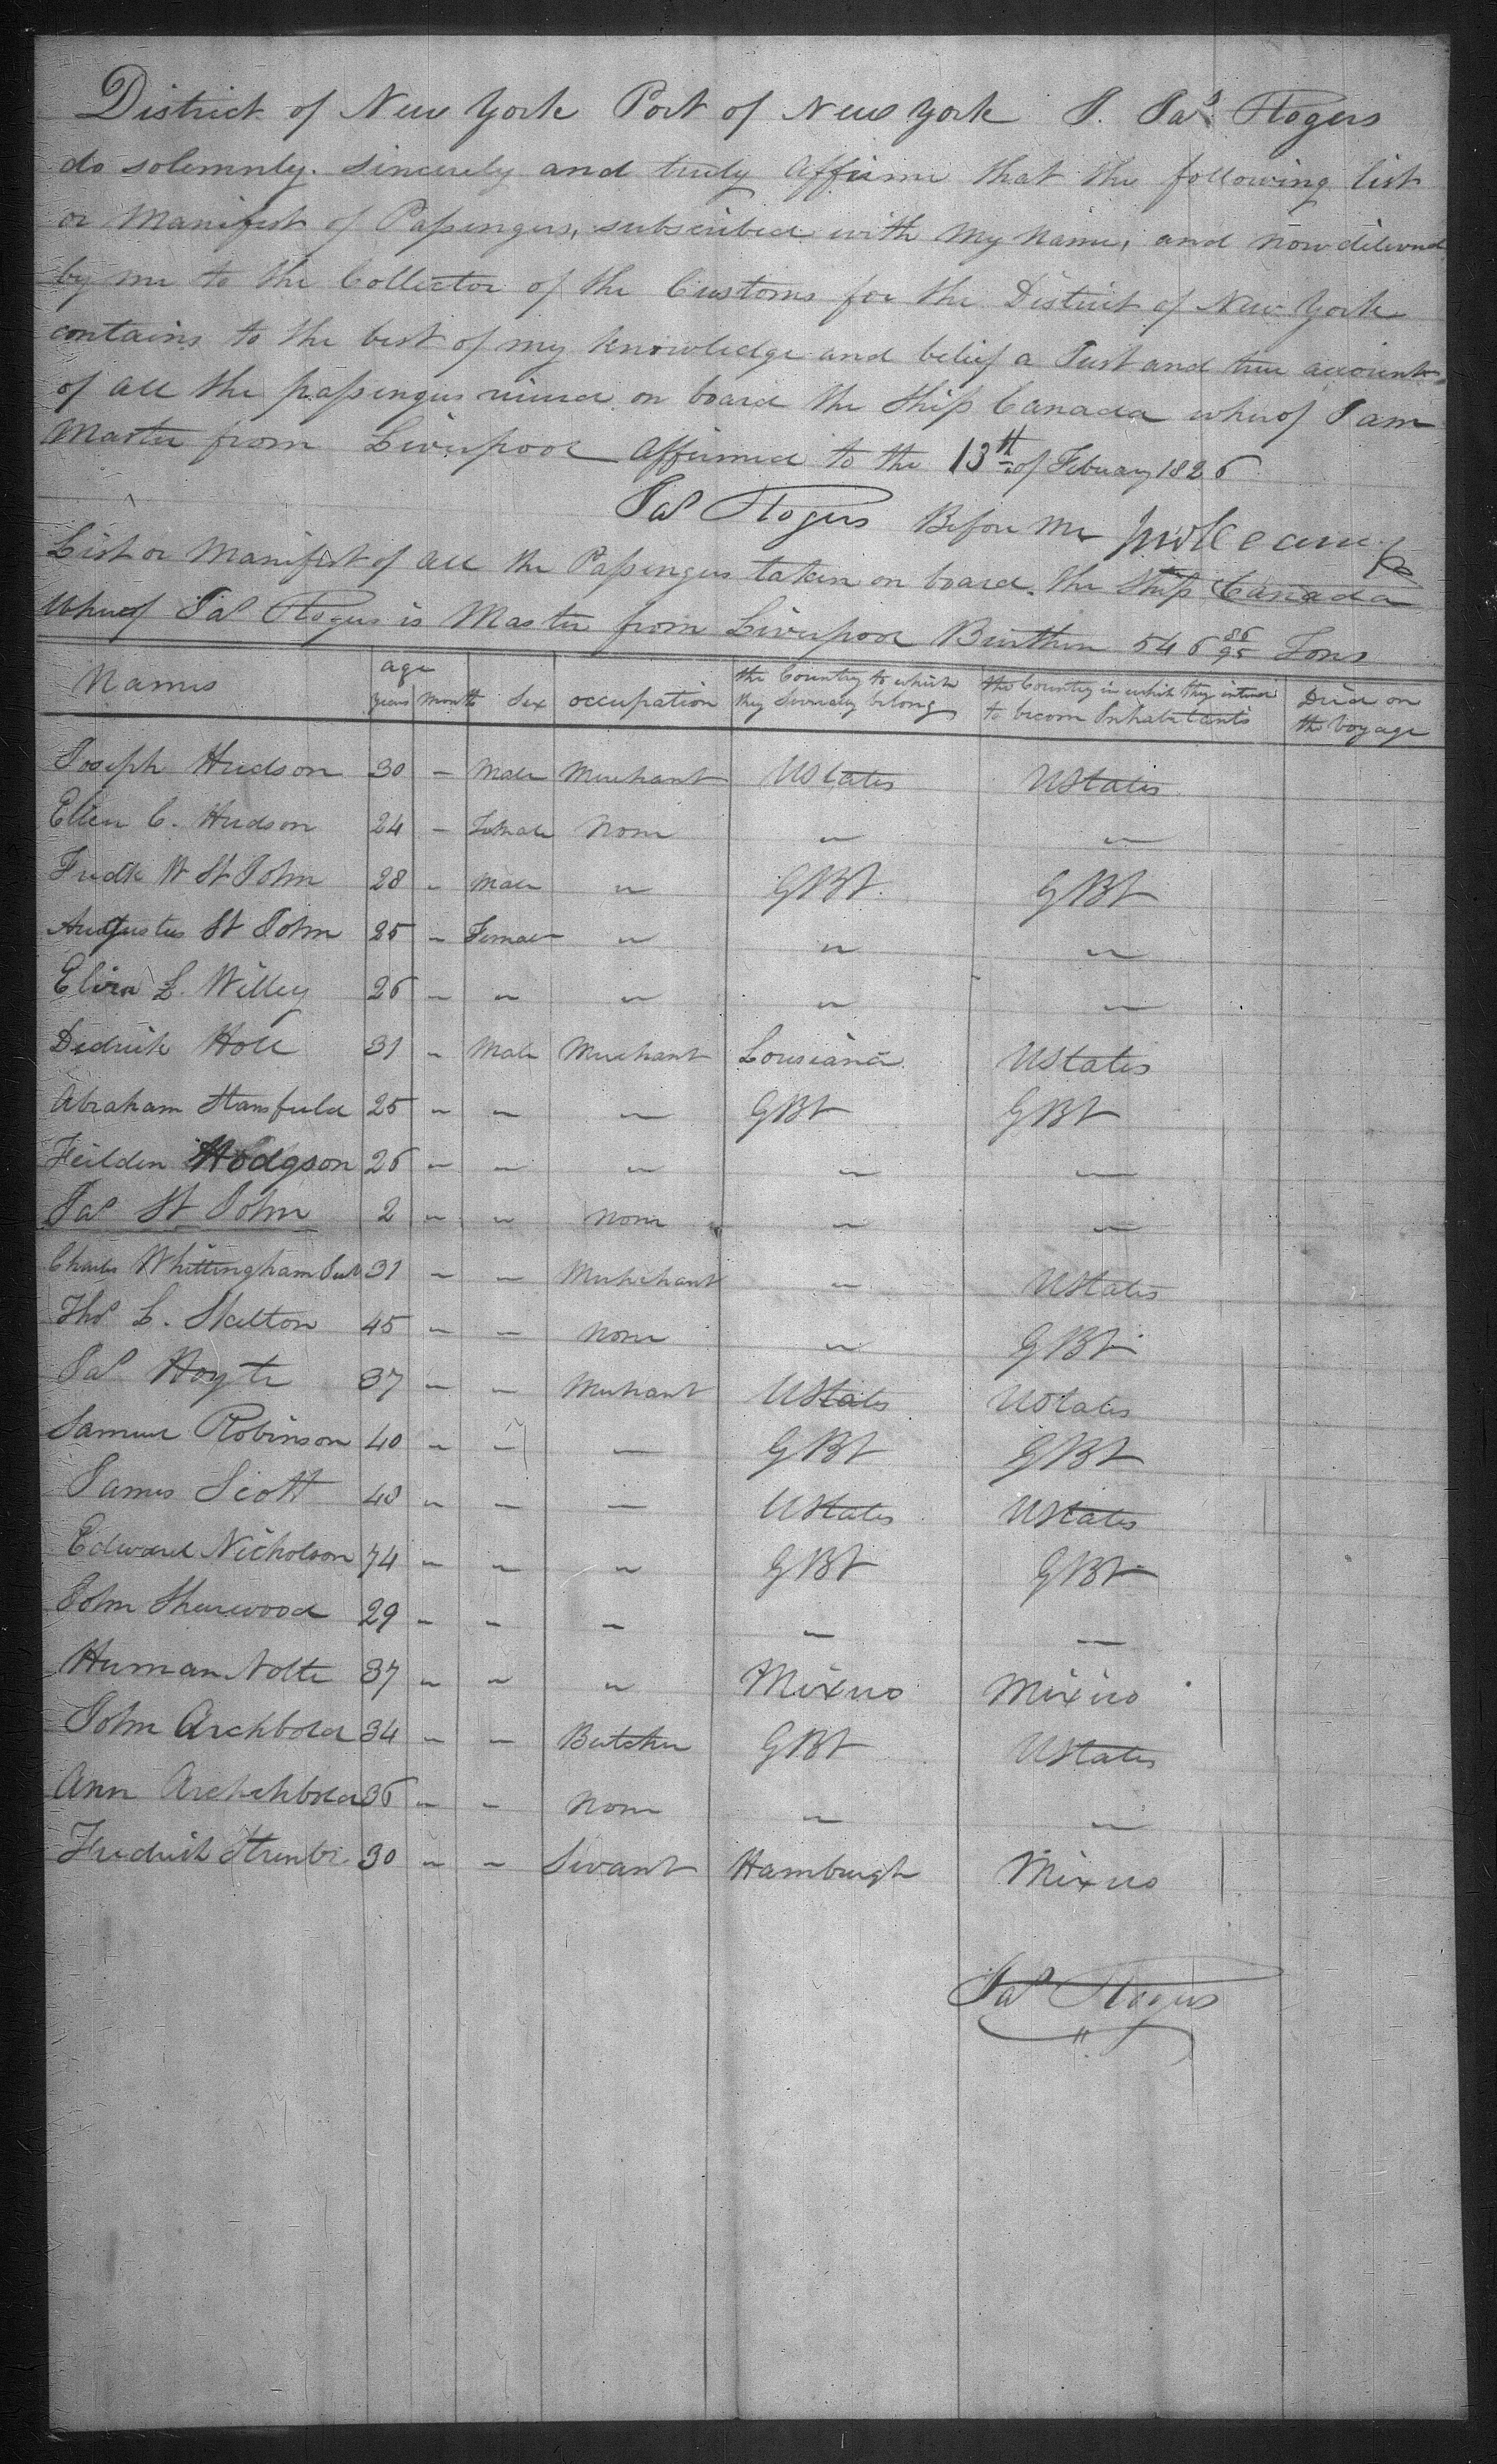 District of New York Port of New York I. Jas Rogers
do solemnly. sincerely and truly affirm that the following list
or Manifest of Passengers, subscribed with my name, and now delivered
by me to the Collector of the Customs for the District of New York
contains to the best of my knowledge and belief a Just and true account
of all the passengers received on board the Ship Canada whereof I am
Master from Liverpool Affirmed to the 13th of Febuary 1826
Jas Rogers Before me
List or Manifest of all the Passengers taken on board the Ship Canada
Whereof Jas Rogers is Master from Liverpool Burthen 546 86/95 Tons
Names age years month Sex occupation the Country to which they severally belong the Country in which they intend to becom Inhabitants Died on the Voyage
Joseph Hudson 30 - Male Merchant UStates UStates
Ellen C. Hudson 24 - Female None " "
Fredk W St John 28 - Male " GBt GBt
Augustus St John 25 - Female " " "
Eliza L. Willey 26 - " " " "
Dedrick Holl 31 - Male Merchant Lousiana UStates
Abraham Stansfield 25 - " " GBt GBt
Feilden Hodgson 26 - " " " "
Jas St John 2 - " None " "
Charles Whittingham 31 - " Merchant " UStates
Thos L. Skelton 45 - " None " GBt
Jas Hoyte 37 - " Merchant UStates UStates
Samuel Robinson 40 - " " GBt GBt
James Scott 43 - " " UStates UStates
Edward Nicholson 74 - " " GBt GBt
John Sherwood 29 - " " " "
Herman Nolte 37 - " " Mexico Mexico
John Archbold 34 - " Butcher GBt UStates
Ann Archchbold 36 - " None " "
Fredrick 30 - " Servant Hamburgh Mexico
Jas Rogers